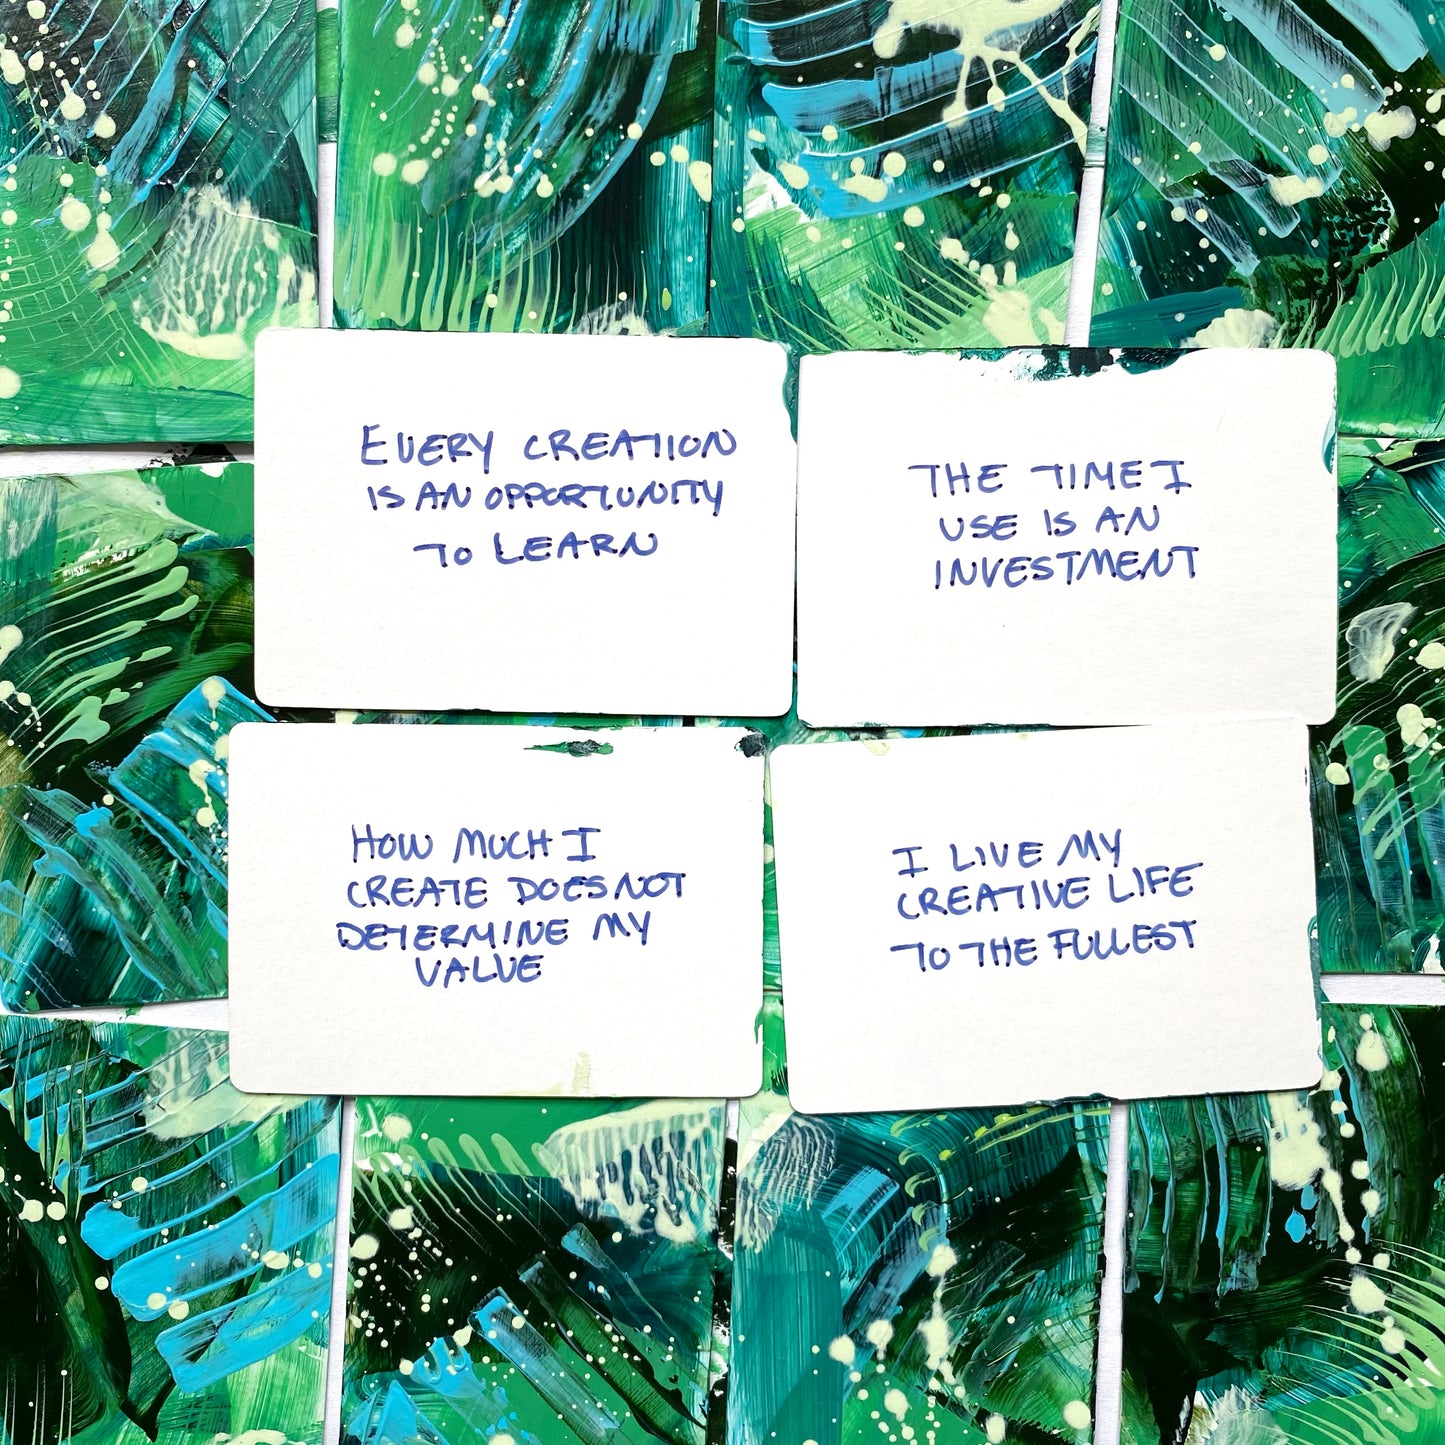 EVERY CREATION
IS AN OPPORTUNITY
TO LEARN
THE TIME I
USE IS AN
INVESTMENT
HOW MUCH I
CREATE DOES NOT
DETERMINE MY
VALUE
I LIVE MY
CREATIVE LIFE
TO THE FULLEST